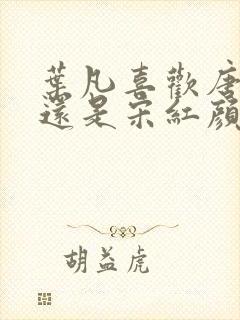 葉凡喜歡唐
還是宋紅顏
胡益虎